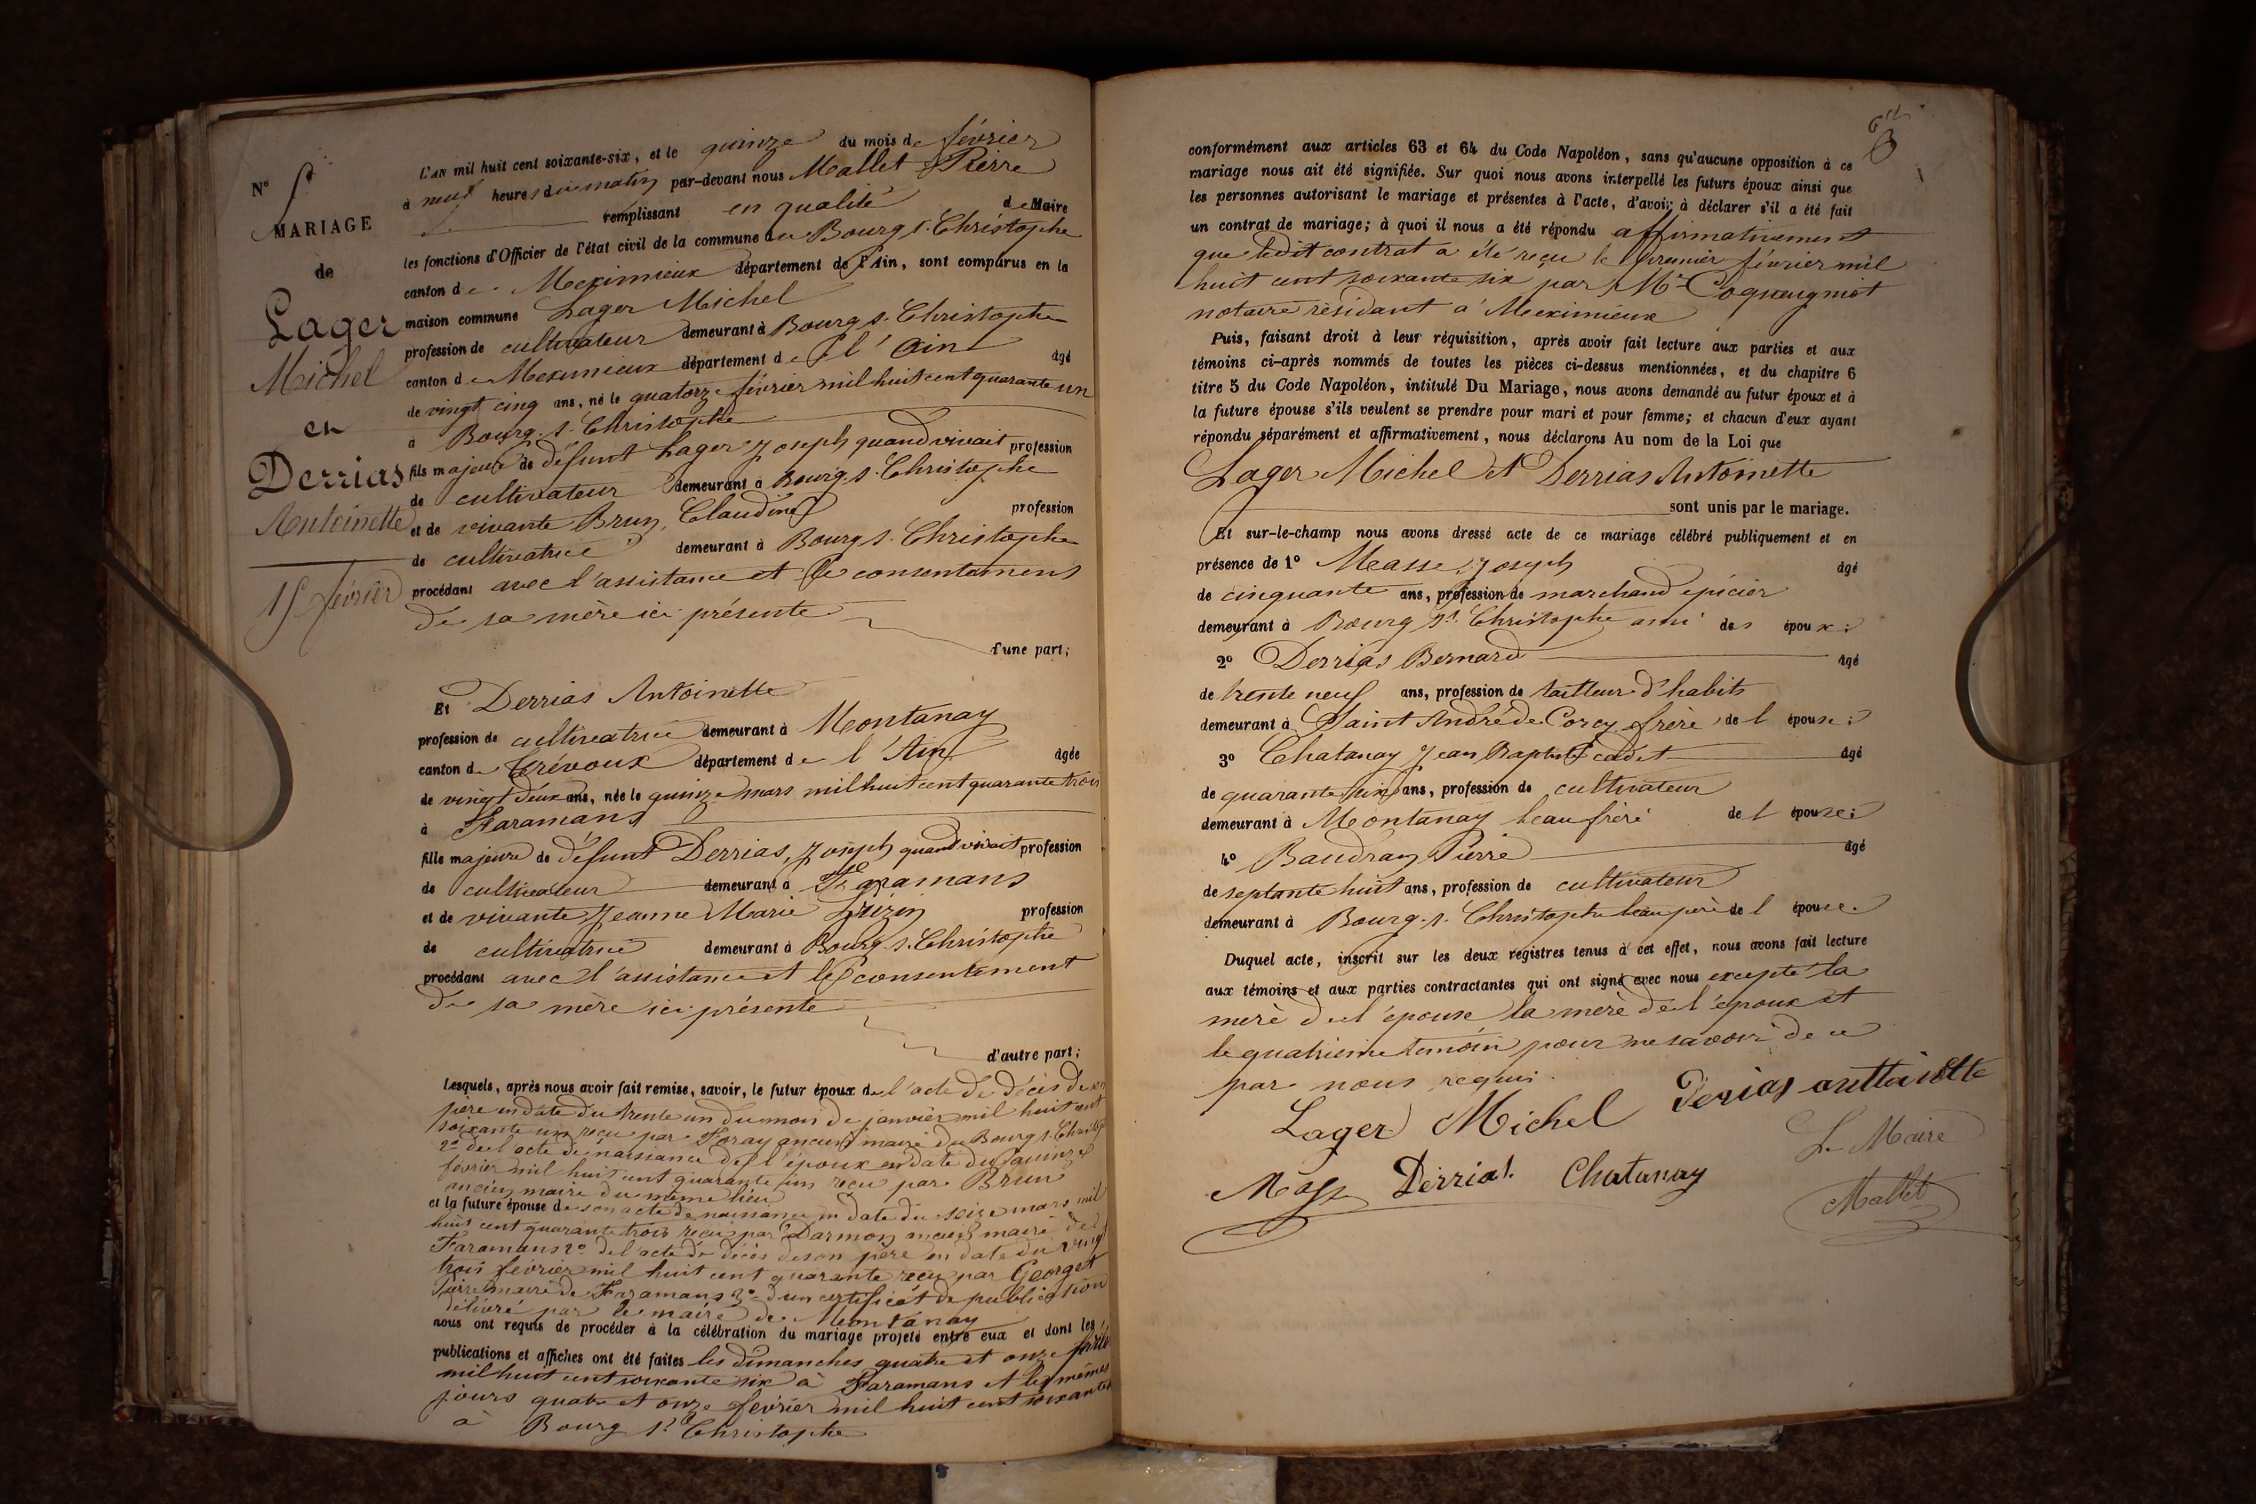 N° 5
MARIAGE
de
Lager
Michel
en
Derrias
Antoinette
15 février
L'AN mil huit cent soixante-six, et le quinze du mois de février
à neuf heures du matin par-devant nous Mallet Pierre
remplissant en qualité de Maire
les fonctions d'Officier de l'état civil de la commune de Bourg St Christophe
canton de Meximieux département de l'Ain, sont comparus en la
maison commune Lager Michel
profession de cultivateur demeurant à Bourg St Christophe
canton de Meximieux département de l'Ain âgé
de vingt cinq ans, né le quatorze février mil huit cent quarante un
à Bourg St Christophe
fils majeur de défunt Lager Joseph quand vivait profession
de cultivateur demeurant à Bourg St Christophe
et de vivante Brun Claudine profession
de cultivatrice demeurant à Bourg St Christophe
procédant avec l'assistance et le consentement
de sa mère ici présente
d'une part;
Et Derrias Antoinette
profession de cultivatrice demeurant à Montanay
canton de Trévoux département de l'Ain âgée
de vingt deux ans, née le quinze mars mil huit cent quarante trois
à Faramans
fille majeure de défunt Derrias Joseph quand vivait profession
de cultivateur demeurant à Faramans
et de vivante Jeanne Marie profession
de cultivatrice demeurant à Bourg St Christophe
procédant avec l'assistance et le consentement
de sa mère ici présente
d'autre part;
Lesquels, après nous avoir fait remise, savoir, le futur époux de l'acte de décès de son
père en date du trente un du mois de janvier mil huit cent
soixante un reçu par Foray ancien maire du Bourg St Christophe
2° de l'acte de naissance de l'époux en date du quinze
février mil huit cent quarante un reçu par Brun
ancien maire du même lieu
et la future épouse de son acte de naissance en date du seize mars mil
huit cent quarante trois reçu par Darmon ancien maire de
Faramans 2° de l'acte de décès de son père en date du vingt
trois février mil huit cent quarante reçu par Georget
Pierre maire de Faramans 3° d'un certificat de publication
délivré par le maire de Montanay
nous ont requis de procéder à la célébration du mariage projeté entre eux et dont les
publications et affiches ont été faites les dimanches quatre et onze février
mil huit cent soixante six à Faramans et les mêmes
jours quatre et onze février mil huit cent soixante
à Bourg St Christophe
conformément aux articles 63 et 64 du Code Napoléon, sans qu'aucune opposition à ce
mariage nous ait été signifiée. Sur quoi nous avons interpellé les futurs époux ainsi que
les personnes autorisant le mariage et présentes à l'acte, d'avoir à déclarer s'il a été fait
un contrat de mariage; à quoi il nous a été répondu affirmativement
que ledit contrat a été reçu le premier février mil
huit cent soixante six par Me Coqueugniot
notaire résidant à Meximieux
Puis, faisant droit à leur réquisition, après avoir fait lecture aux parties et aux
témoins ci-après nommés de toutes les pièces ci-dessus mentionnées, et du chapitre 6
titre 5 du Code Napoléon, intitulé Du Mariage, nous avons demandé au futur époux et à
la future épouse s'ils veulent se prendre pour mari et pour femme; et chacun d'eux ayant
répondu séparément et affirmativement, nous déclarons Au nom de la Loi que
Lager Michel et Derrias Antoinette
sont unis par le mariage.
Et sur-le-champ nous avons dressé acte de ce mariage célébré publiquement et en
présence de 1° Masse Joseph âgé
de cinquante ans, profession de marchand épicier
demeurant à Bourg St Christophe ami des époux;
2° Derrias Bernard âgé
de trente neuf ans, profession de tailleur d'habits
demeurant à Saint André de Corcy frère de l'épouse;
3° Chatanay Jean Baptiste cadet âgé
de quarante six ans, profession de cultivateur
demeurant à Montanay beau frère de l'épouse;
4° Baudran Pierre âgé
de septante huit ans, profession de cultivateur
demeurant à Bourg St Christophe beau père de l'épouse.
Duquel acte, inscrit sur les deux registres tenus à cet effet, nous avons fait lecture
aux témoins et aux parties contractantes qui ont signé avec nous excepté la
mère de l'épouse la mère de l'époux et
le quatrième témoin pour ne savoir de ce
par nous requis.
Lager Michel Derias anttoinette
Masse Derrias. Chatanay
Le Maire
Mallet